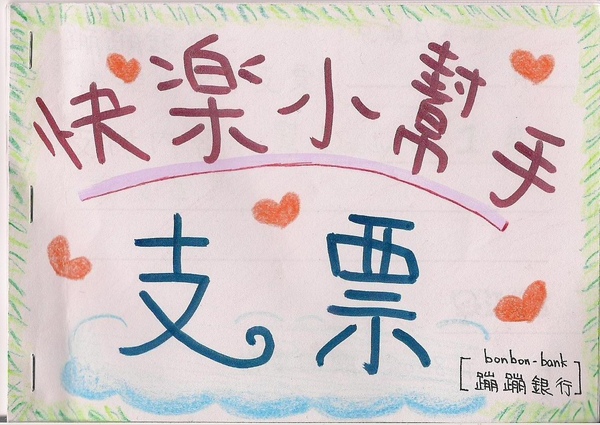 快樂小幫手
支票
bonbon-bank
蹦蹦銀行